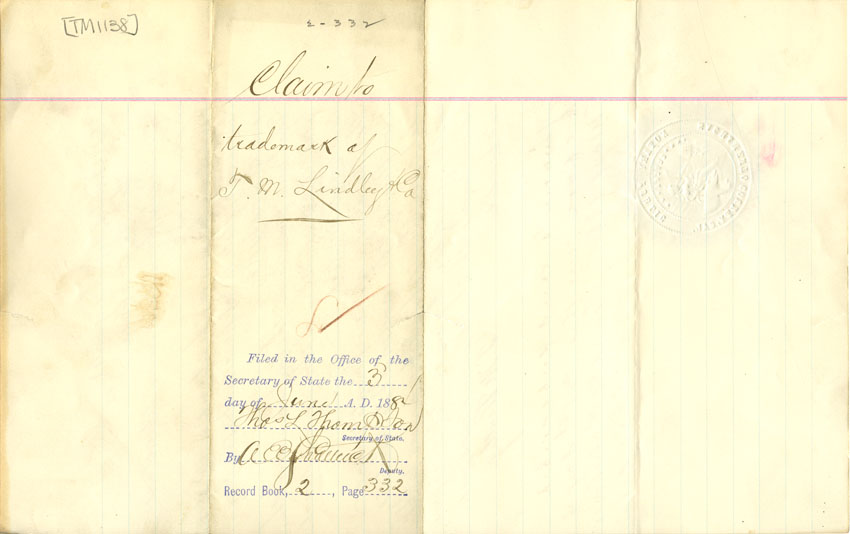 [TM1138]
2-332
Claim to
trademark of
T. M. Lindley & Co
Filed in the Office of the
Secretary of State the 3
day of June A. D. 188
Thos L Thompson
Secretary of State.
By
Deputy.
Record Book, 2, Page 332